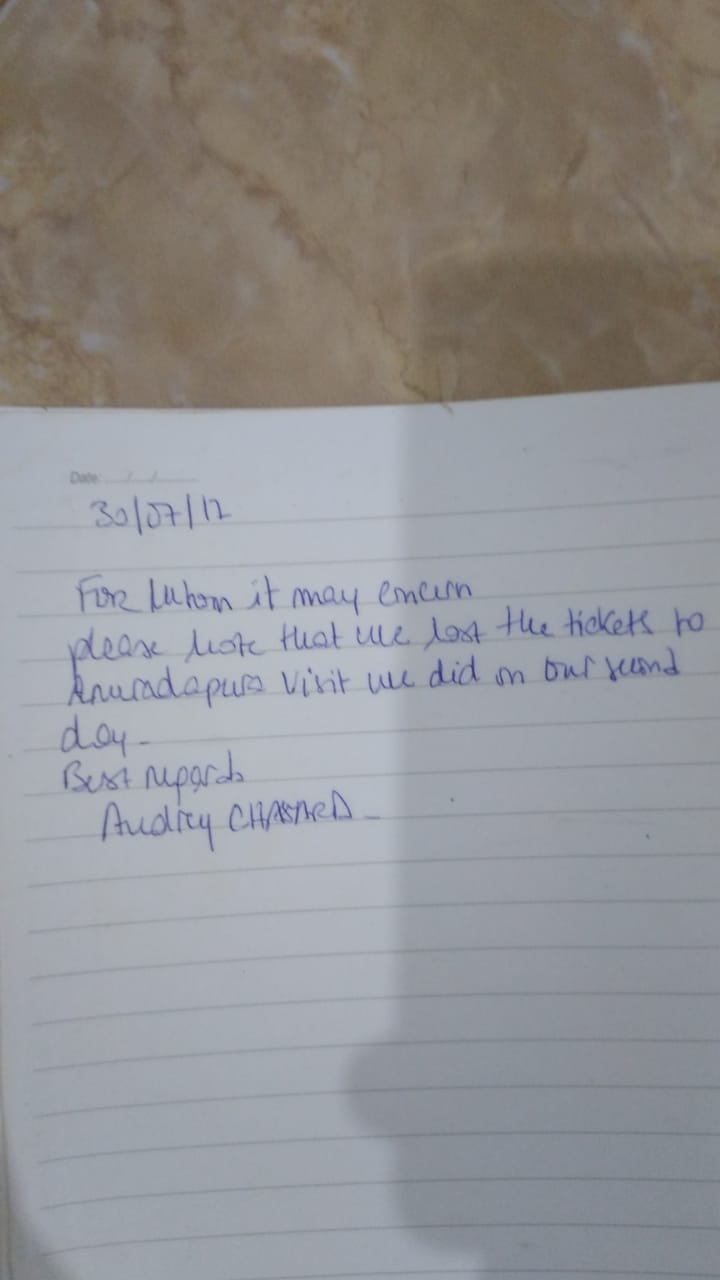 Date: / /
30/07/12
For whom it may concern
please note that we lost the tickets to
Anuradapura visit we did on our second
day-
Best regards
Audrey